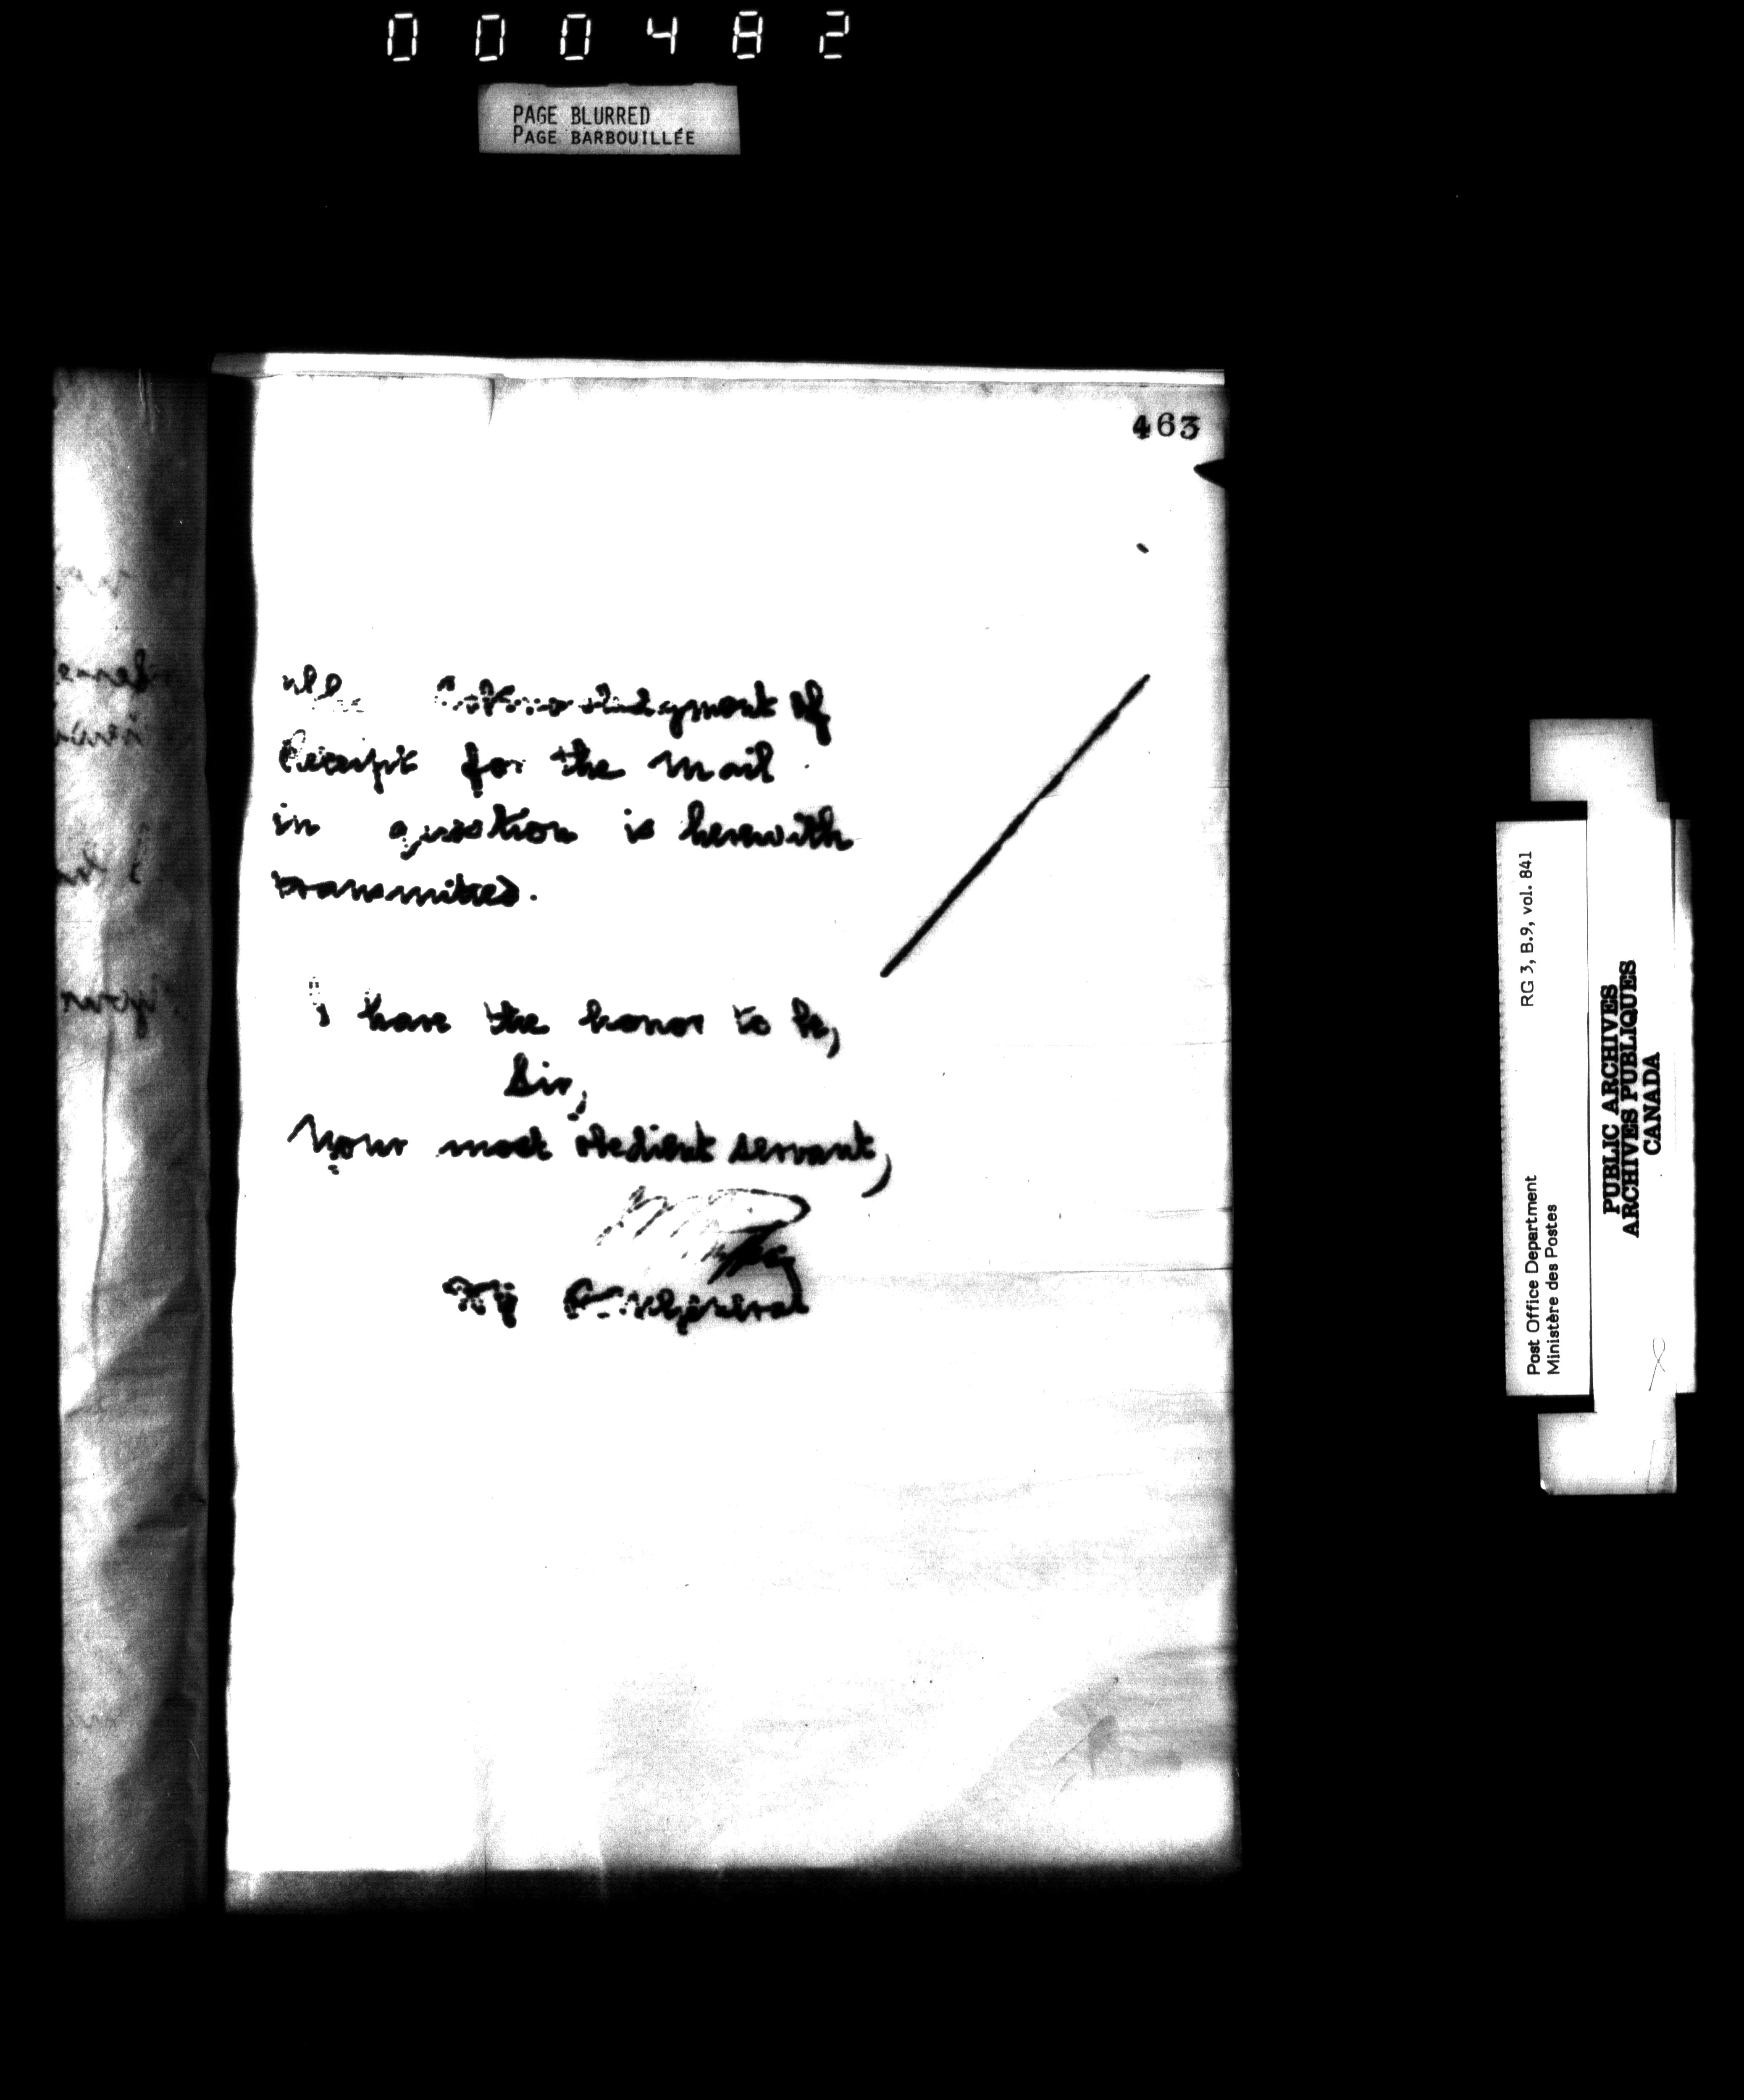 000482
PAGE BLURRED
PAGE BARBOUILLÉE
463
The Acknowledgment of
Receipt for the mail
in question is herewith
transmitted.
I have the honor to be,
Sir,
Your most obedient servant,
General
RG 3, B.9, vol. 841
Post Office Department
Ministère des Postes
PUBLIC ARCHIVES
ARCHIVES PUBLIQUES
CANADA